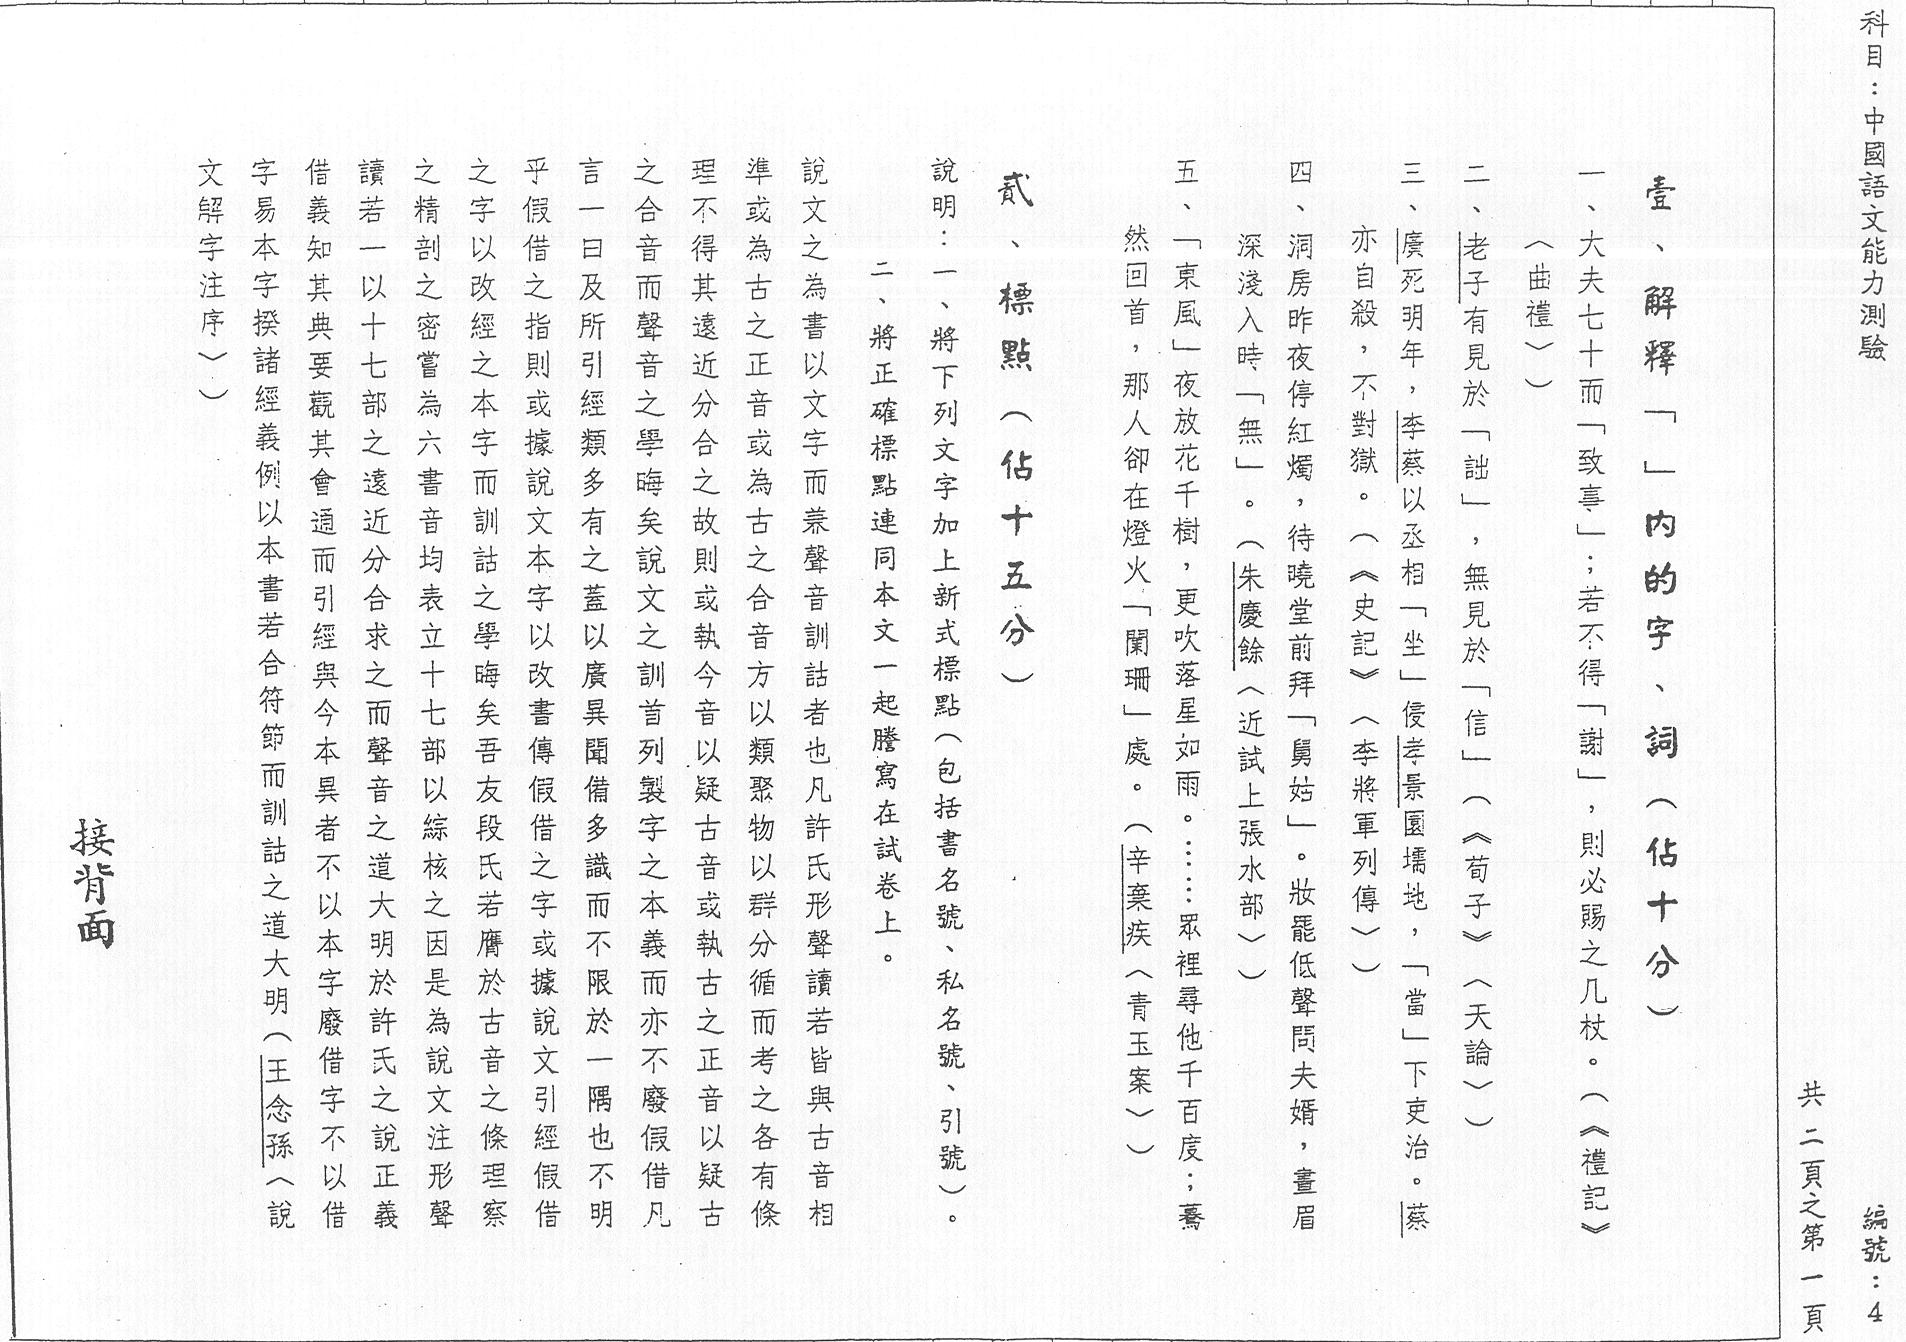 科目：中國語文能力測驗
編號：4
共二頁之第一頁
壹、解釋「」內的字、詞（佔十分）
一、大夫七十而「致事」；若不得「謝」，則必賜之几杖。（《禮記》
〈曲禮〉）
二、老子有見於「詘」，無見於「信」（《荀子》〈天論〉）
三、廣死明年，李蔡以丞相「坐」侵孝景園壖地，「當」下吏治。蔡
亦自殺，不對獄。（《史記》〈李將軍列傳〉）
四、洞房昨夜停紅燭，待曉堂前拜「舅姑」。妝罷低聲問夫婿，畫眉
深淺入時「無」。（朱慶餘〈近試上張水部〉）
五、「東風」夜放花千樹，更吹落星如雨。……眾裡尋他千百度；驀
然回首，那人卻在燈火「闌珊」處。（辛棄疾〈青玉案〉）
貳、標點（佔十五分）
說明：一、將下列文字加上新式標點（包括書名號、私名號、引號）。
二、將正確標點連同本文一起謄寫在試卷上。
說文之為書以文字而兼聲音訓詁者也凡許氏形聲讀若皆與古音相
準或為古之正音或為古之合音方以類聚物以群分循而考之各有條
理不得其遠近分合之故則或執今音以疑古音或執古之正音以疑古
之合音而聲音之學晦矣說文之訓首列製字之本義而亦不廢假借凡
言一曰及所引經類多有之蓋以廣異聞備多識而不限於一隅也不明
乎假借之指則或據說文本字以改書傳假借之字或據說文引經假借
之字以改經之本字而訓詁之學晦矣吾友段氏若膺於古音之條理察
之精剖之密嘗為六書音均表立十七部以綜核之因是為說文注形聲
讀若一以十七部之遠近分合求之而聲音之道大明於許氏之說正義
借義知其典要觀其會通而引經與今本異者不以本字廢借字不以借
字易本字揆諸經義例以本書若合符節而訓詁之道大明（王念孫〈說
文解字注序〉）
接背面